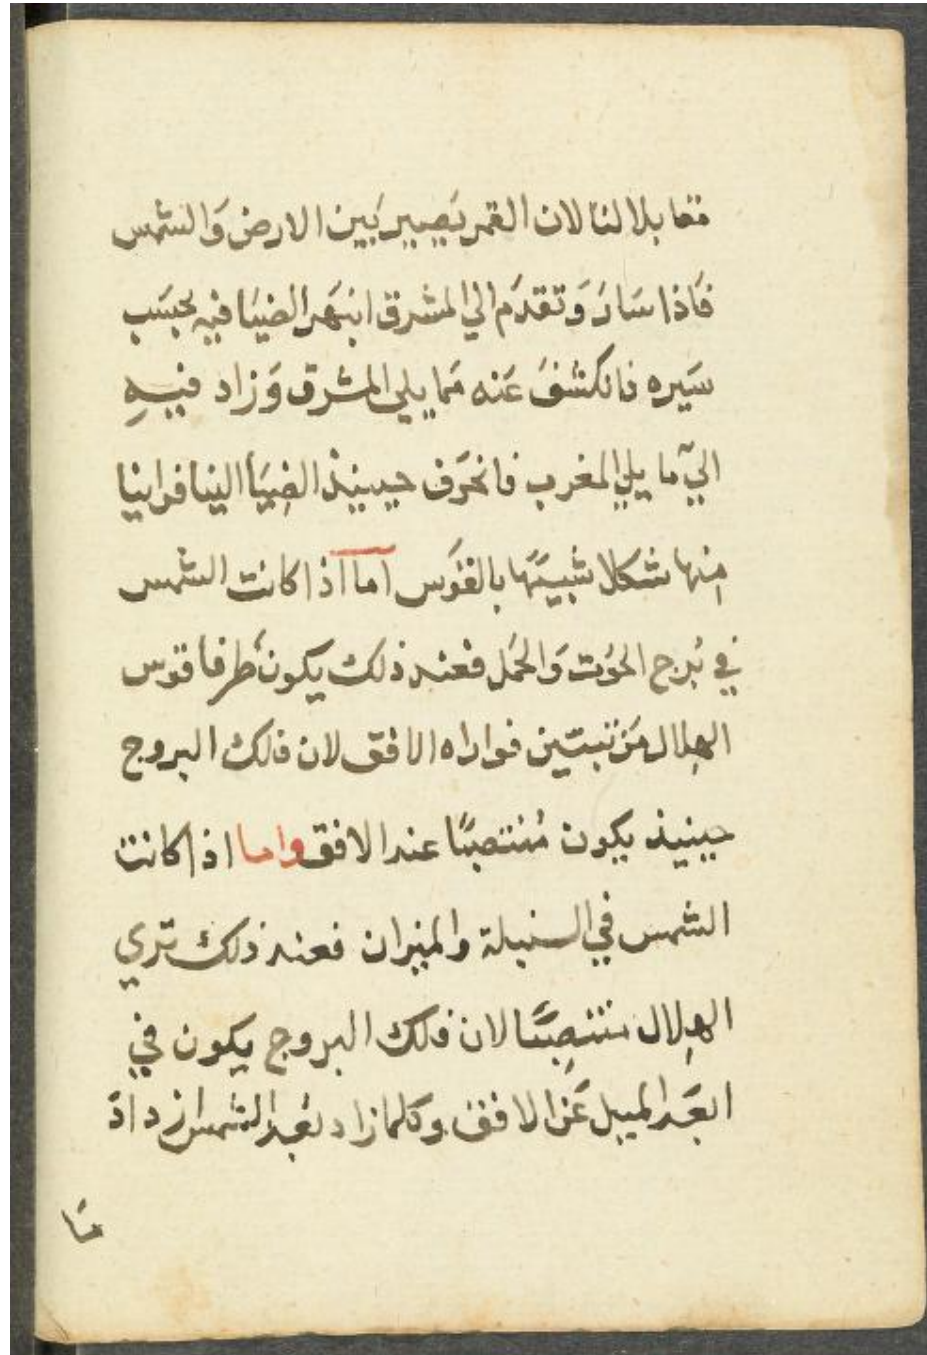 مقابلا لنا لان القمر يَصِير بَين الارض وَالشمس
فَاذا سَارَ وَتقدَم الي المشرق ابتهر الضيَا فيه بحسَب
سَيره فانكشفَ عَنه مَما يلي المشرق وَزاد فيهِ
اليٓ ما يلي المغرب فانحَرف حينيذ الضِيَا الينا فراينا
منها شكلا شبيهًا بالقوَس اما اذا كانت الشمس
في بُرج الحوُت وَالحمَل فعند ذلك يكون طرفا قوس
الهِلال مَرتبتين فوازاه الافق لان فلك البروج
حينيذ يكون مُنتصبًا عند الافق واما اذا كانت
الشمس في السنبلة والميزان فعند ذلك تري
الهِلال منتصِبًا لان فلك البروج يكون فيِ
ابعَد الميل عَن الافق وكلما زاد بعُد الشمس ازدادَ
مَا